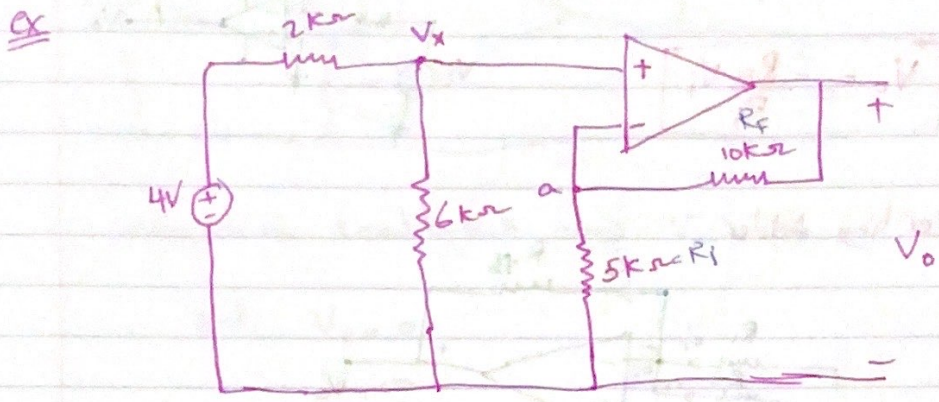 ex
2kΩ
Vx
+
-
Rf
10kΩ
+
4V
+
-
6kΩ
a
5kΩ=Ri
Vo
-